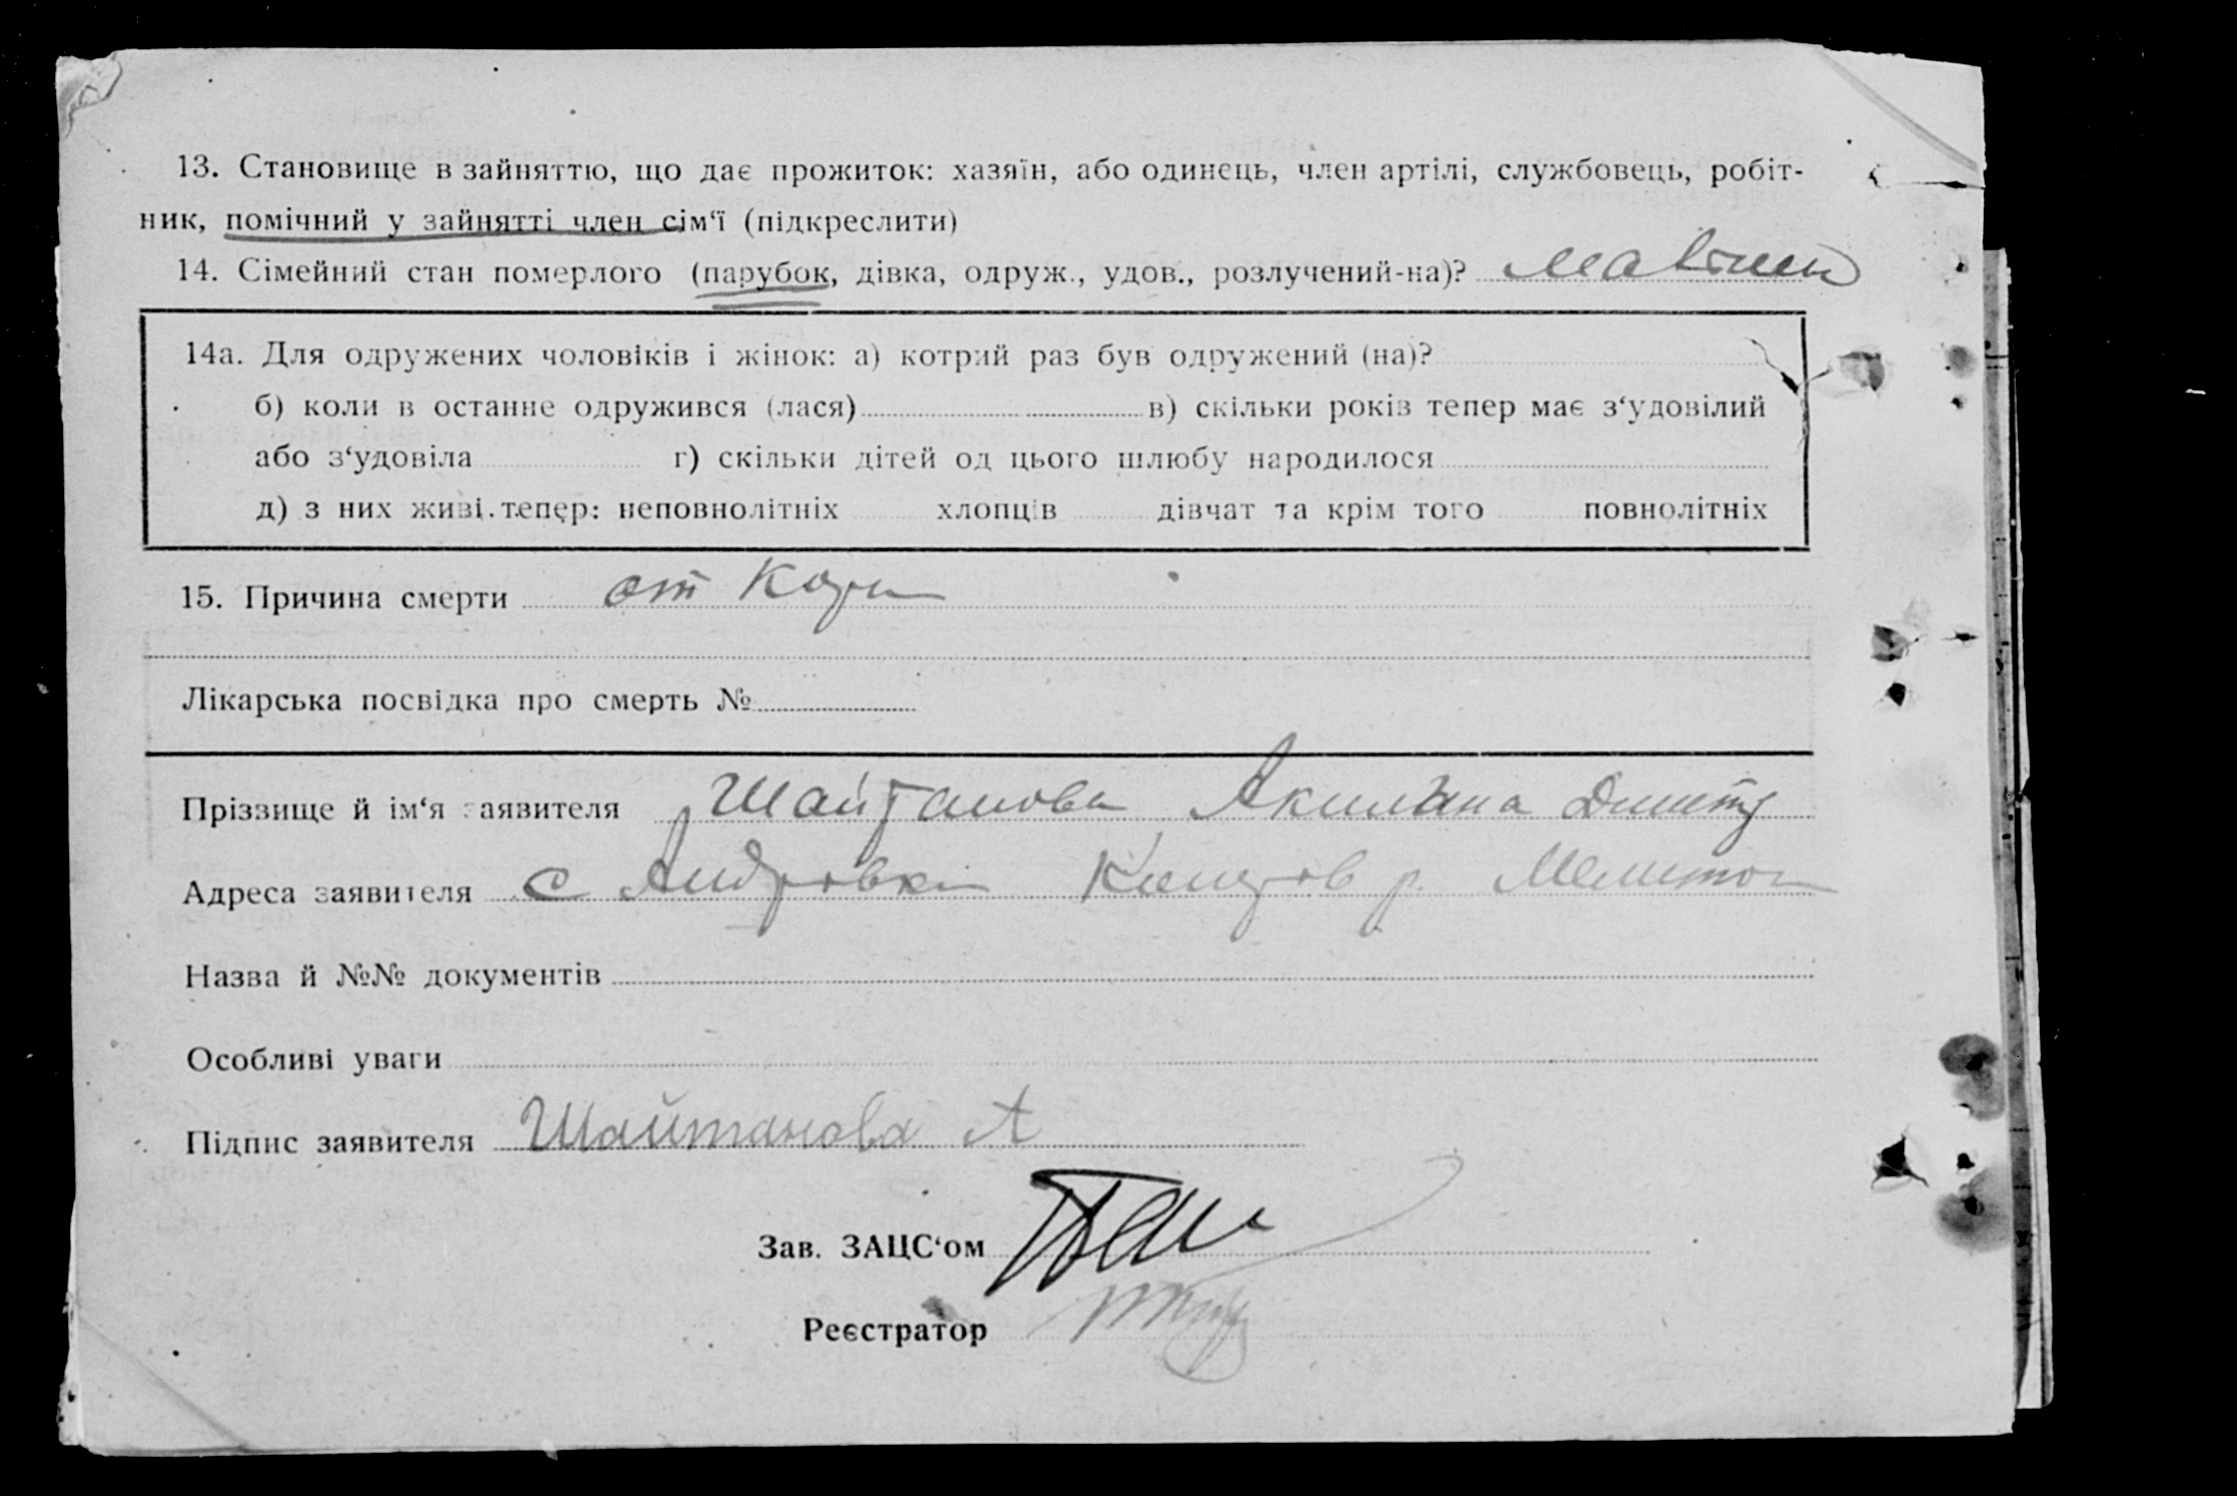 13. Становище в зайняттю, що дає прожиток: хазяїн, або одинець, член артілі, службовець, робіт-
ник, помічний у зайнятті член сім‘ї (підкреслити)
14. Сімейний стан померлого (парубок, дівка, одруж., удов., розлучений-на)?
14а. Для одружених чоловіків і жінок: а) котрий раз був одружений (на)?
б) коли в останнє одружився (лася) в) скільки років тепер має з‘удовілий
або з‘удовіла г) скільки дітей од цього шлюбу народилося
д) з них живі тепер: неповнолітніх хлопців дівчат та крім того повнолітніх
15. Причина смерти от Кори
Лікарська посвідка про смерть №
Прізвище й ім‘я заявителя Шайтанова Акилина
Адреса заявителя с Андровка р.
Назва й №№ документів
Особливі уваги
Підпис заявителя Шайтанова А
Зав. ЗАЦС‘ом
Реєстратор